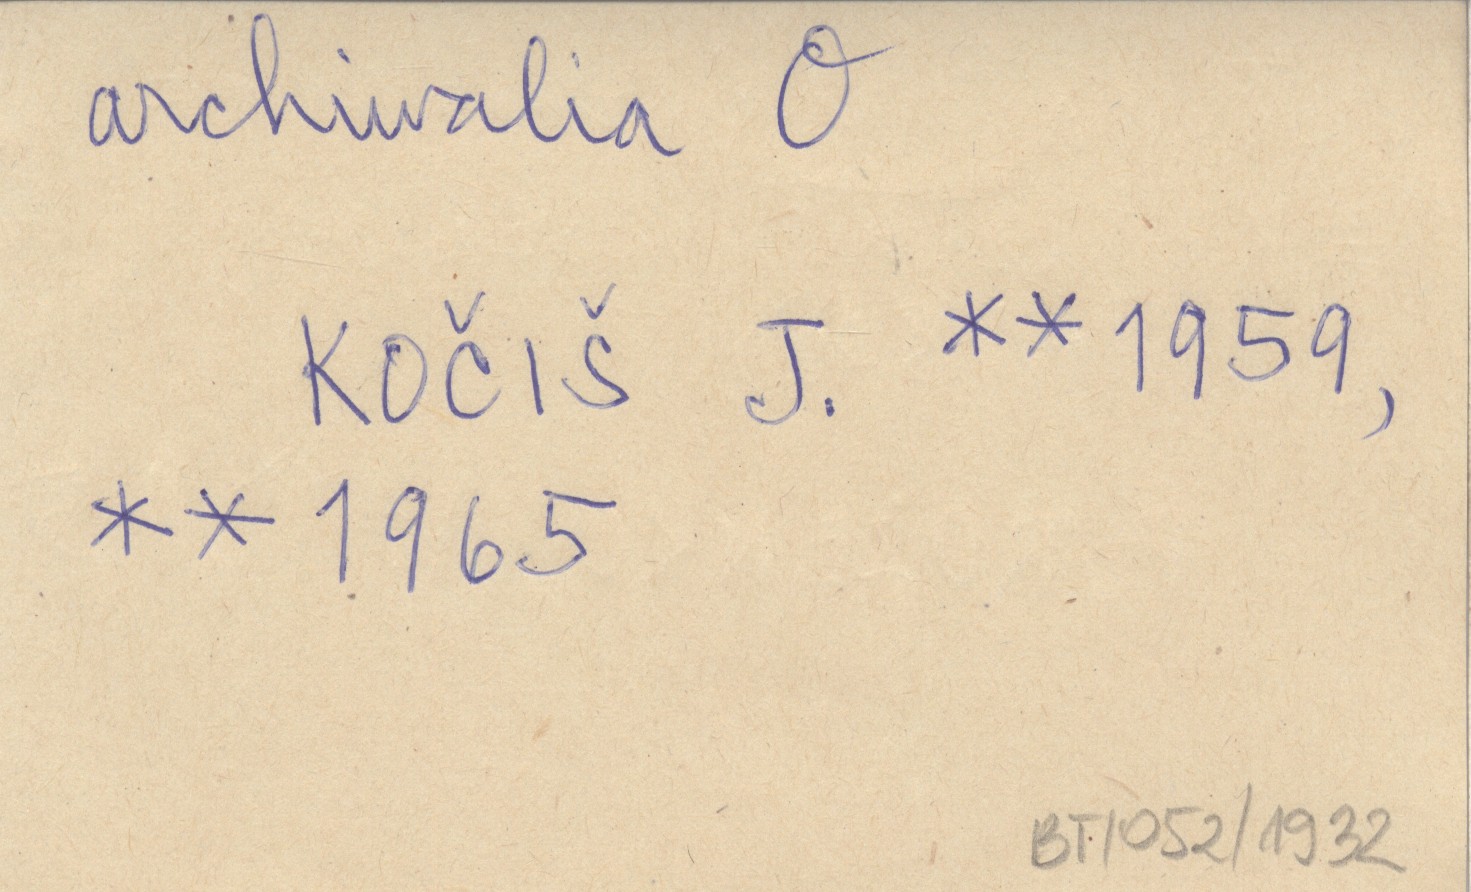 archiwalia O
KOČIŠ J. **1959,
**1965
BT/052/1932